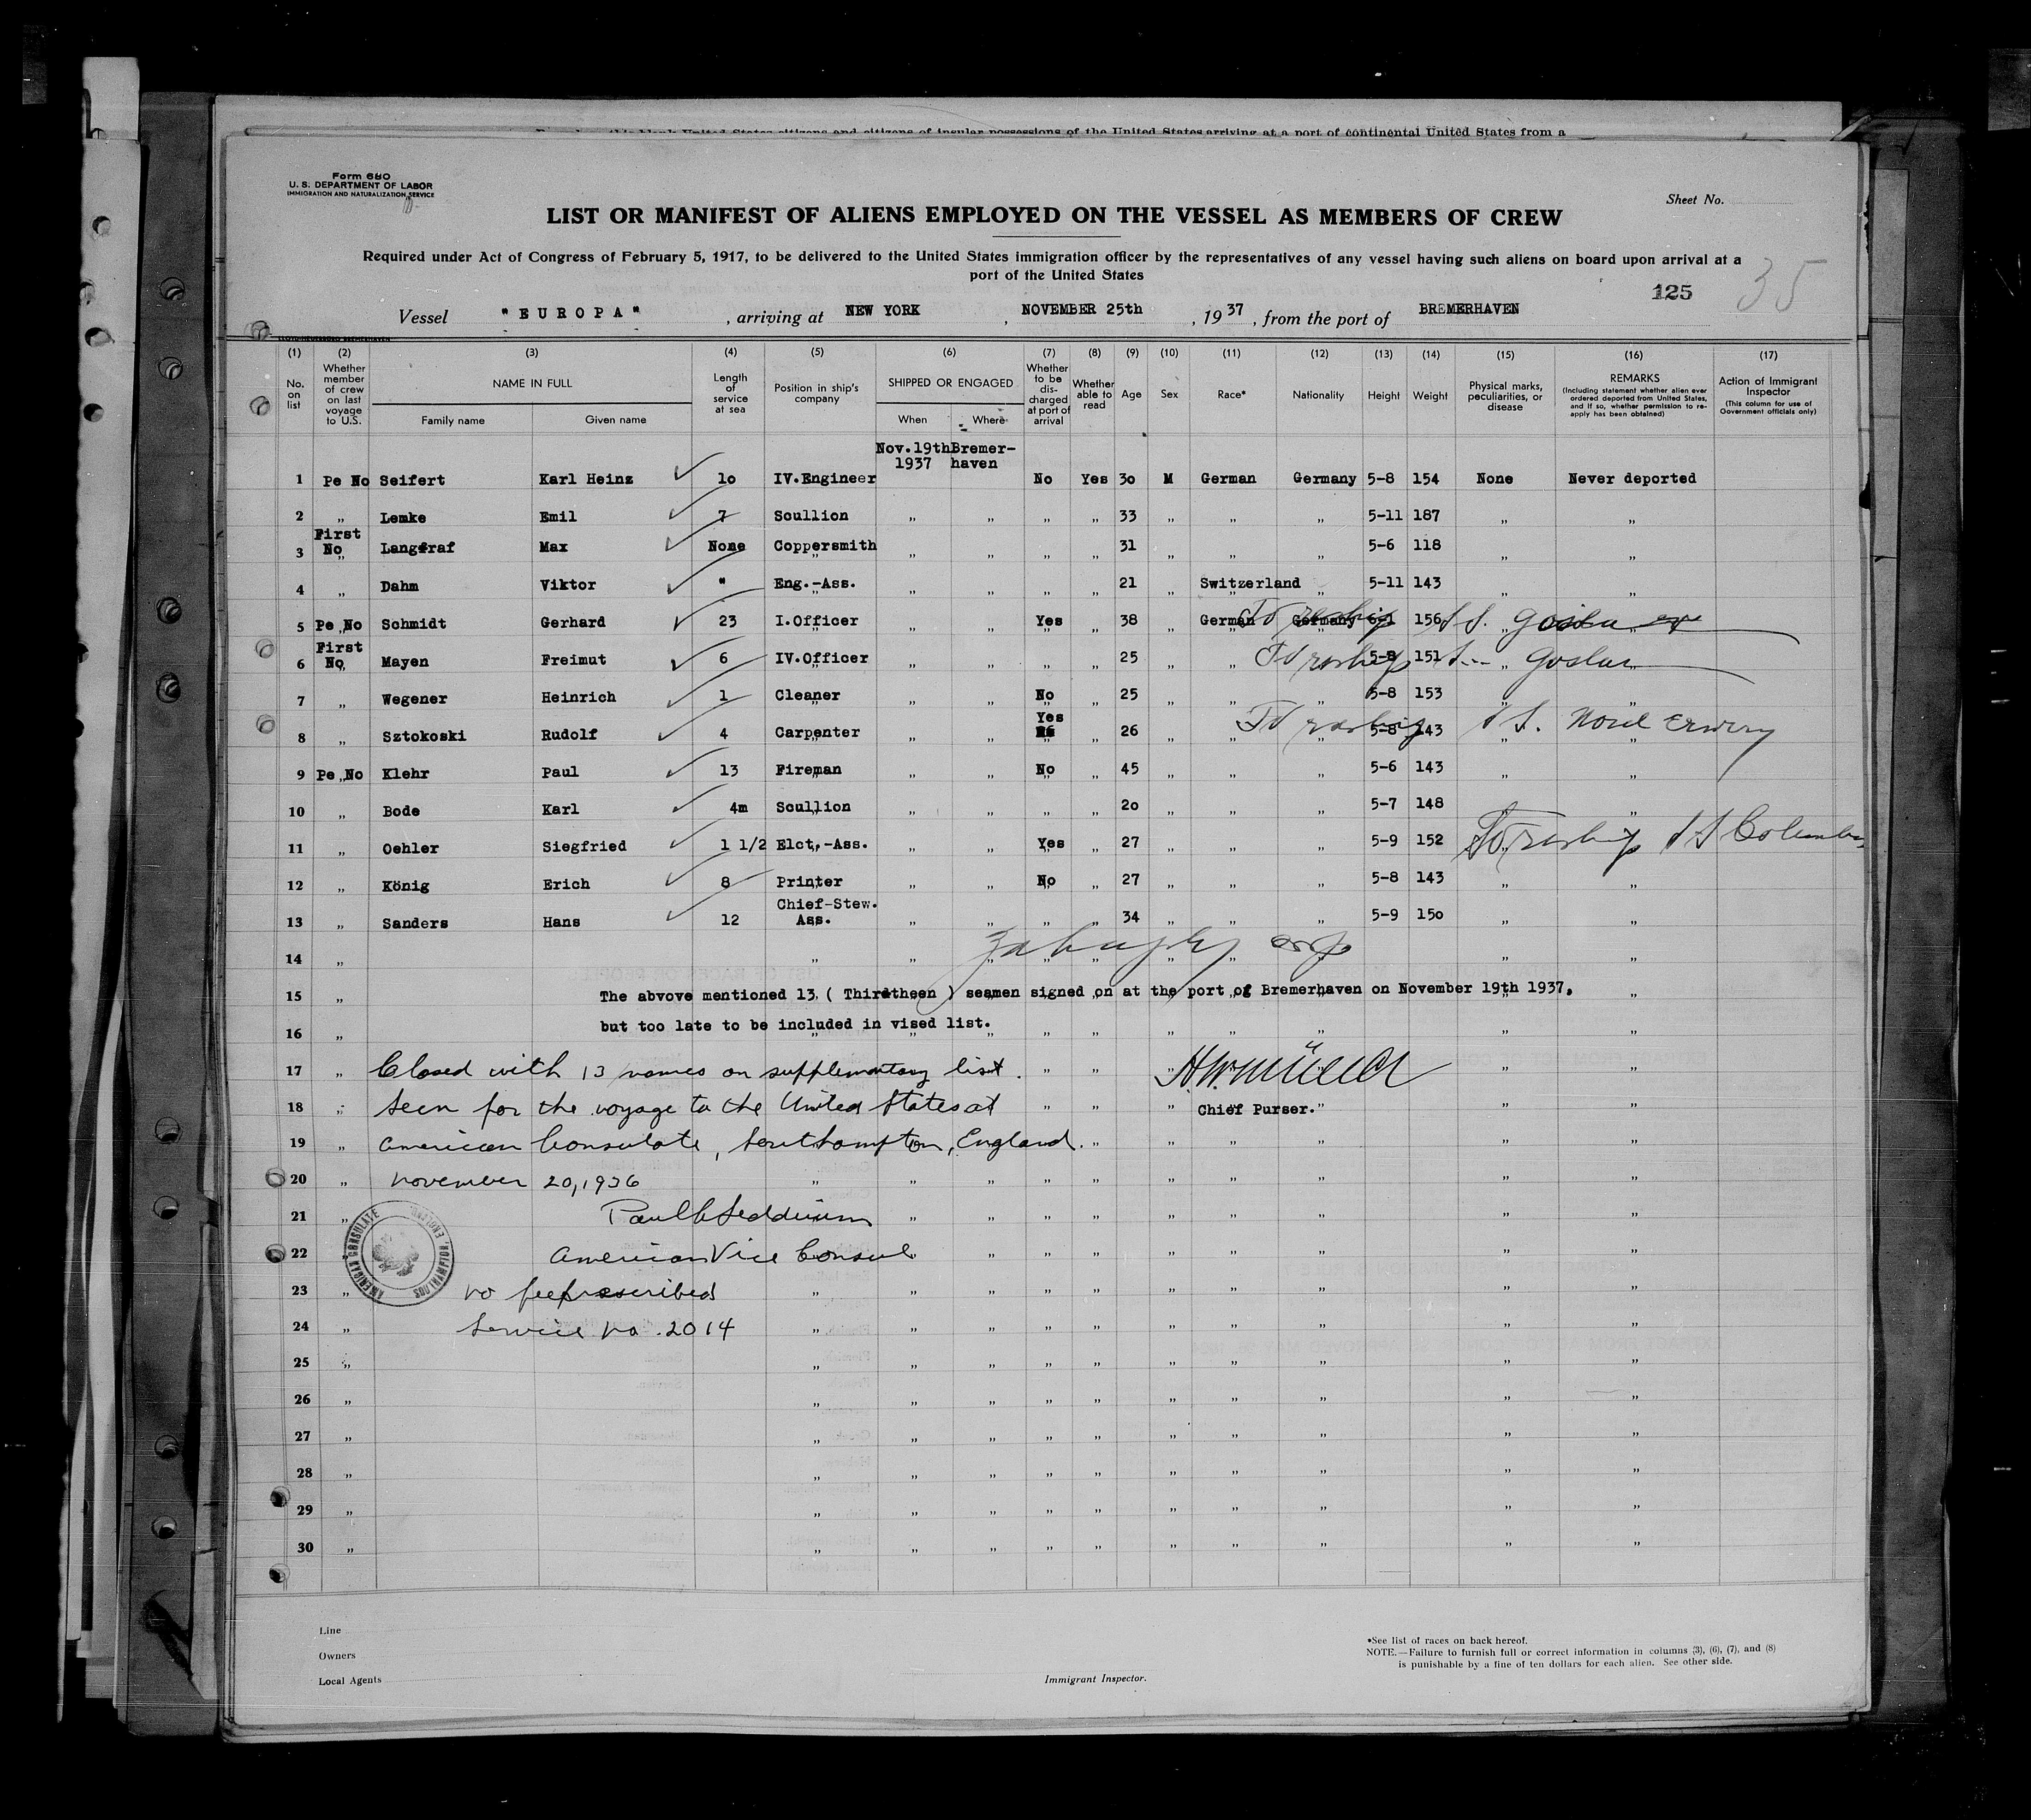 Form 680
U. S. DEPARTMENT OF LABOR
IMMIGRATION AND NATURALIZATION SERVICE
Sheet No.
LIST OR MANIFEST OF ALIENS EMPLOYED ON THE VESSEL AS MEMBERS OF CREW
Required under Act of Congress of February 5, 1917, to be delivered to the United States immigration officer by the representatives of any vessel having such aliens on board upon arrival at a
port of the United States
125 35
Vessel "EUROPA", arriving at NEW YORK, NOVEMBER 25th, 1937, from the port of BREMERHAVEN
(1) (2) (3) (4) (5) (6) (7) (8) (9) (10) (11) (12) (13) (14) (15) (16) (17)
No. on list
Whether member of crew on last voyage to U.S.
NAME IN FULL
Family name Given name
Length of service at sea
Position in ship's company
SHIPPED OR ENGAGED
When Where
Whether to be discharged at port of arrival
Whether able to read
Age Sex Race* Nationality Height Weight
Physical marks, peculiarities, or disease
REMARKS
(Including statement whether alien ever ordered deported from United States, and if so, whether permission to reapply has been obtained)
Action of Immigrant Inspector
(This column for use of Government officials only)
Nov.19th Bremer-
1937 haven
1 Pe No Seifert Karl Heinz 1o IV.Engineer No Yes 3o M German Germany 5-8 154 None Never deported
2 „ Lemke Emil 7 Scullion „ „ „ „ 33 „ „ „ 5-11 187 „ „
3 First No „ Langfraf Max None Coppersmith „ „ „ „ 31 „ „ „ 5-6 118 „ „
4 „ Dahm Viktor " Eng.-Ass. „ „ „ „ 21 „ Switzerland „ 5-11 143 „ „
5 Pe No Schmidt Gerhard 23 I.Officer „ „ Yes „ 38 „ German Germany 6-1 156 „ „
To reship S S. Goslar
6 First No Mayen Freimut 6 IV.Officer „ „ „ „ 25 „ „ „ 5-8 151 „ „
To reship Goslar
7 „ Wegener Heinrich 1 Cleaner „ „ No „ 25 „ „ „ 5-8 153 „ „
8 „ Sztokoski Rudolf 4 Carpenter „ „ Yes „ 26 „ „ „ 5-8 143 „ „
To reship S S.
9 Pe No Klehr Paul 13 Fireman „ „ No „ 45 „ „ „ 5-6 143 „ „
10 „ Bode Karl 4m Scullion „ „ „ „ 2o „ „ „ 5-7 148 „ „
11 „ Oehler Siegfried 1 1/2 Elct.-Ass. „ „ Yes „ 27 „ „ „ 5-9 152 „
To reship S S Columbus
12 „ König Erich 8 Printer „ „ No „ 27 „ „ „ 5-8 143 „ „
13 „ Sanders Hans 12 Chief-Stew. Ass. „ „ „ „ 34 „ „ „ 5-9 15o „ „
14 „
15 „ The abvove mentioned 13 ( Thirdtheen ) seamen signed on at the port of Bremerhaven on November 19th 1937.
16 „ but too late to be included in vised list.
17 „ Closed with 13 names on supplementary list.
18 „ Seen for the voyage to the United States at
Chief Purser.
19 „ American Consulate, Southampton, England.
20 „ November 20, 1936
21 „
22 American Vice Consul
AMERICAN CONSULATE SOUTHAMPTON, ENGLAND.
23 „ No fee prescribed
24 „ Service No. 2014
25 „
26 „
27 „
28 „
29 „
30 „
Line
Owners
Local Agents
Immigrant Inspector.
*See list of races on back hereof.
NOTE.—Failure to furnish full or correct information in columns (3), (6), (7), and (8)
is punishable by a fine of ten dollars for each alien. See other side.